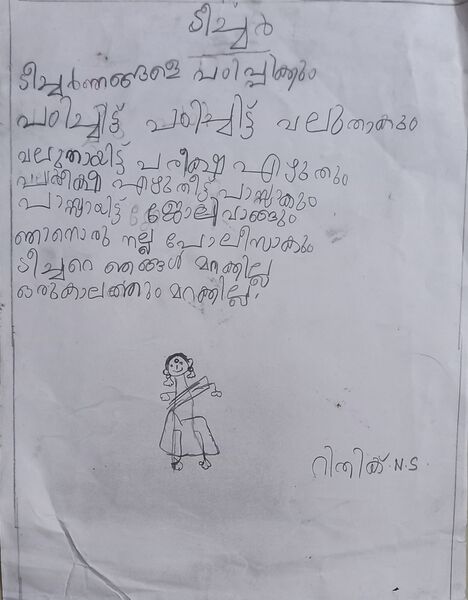 ടീച്ചർ
ടീച്ചർഞങ്ങളെ പഠിപ്പിക്കും
പഠിച്ചിട്ട് പഠിച്ചിട്ട് വലുതാകും
വലുതായിട്ട് പരീക്ഷ എഴുതും
പരീക്ഷ എഴുതീട്ട് പാസ്സാകും
പാസ്സായിട്ട് ജോലിവാങ്ങും
ഞാനൊരു നല്ല പോലീസാകും
ടീച്ചറെ ഞങ്ങൾ മറക്കില്ല
ഒരുകാലത്തും മറക്കില്ല.
റിതിക്. N.S.